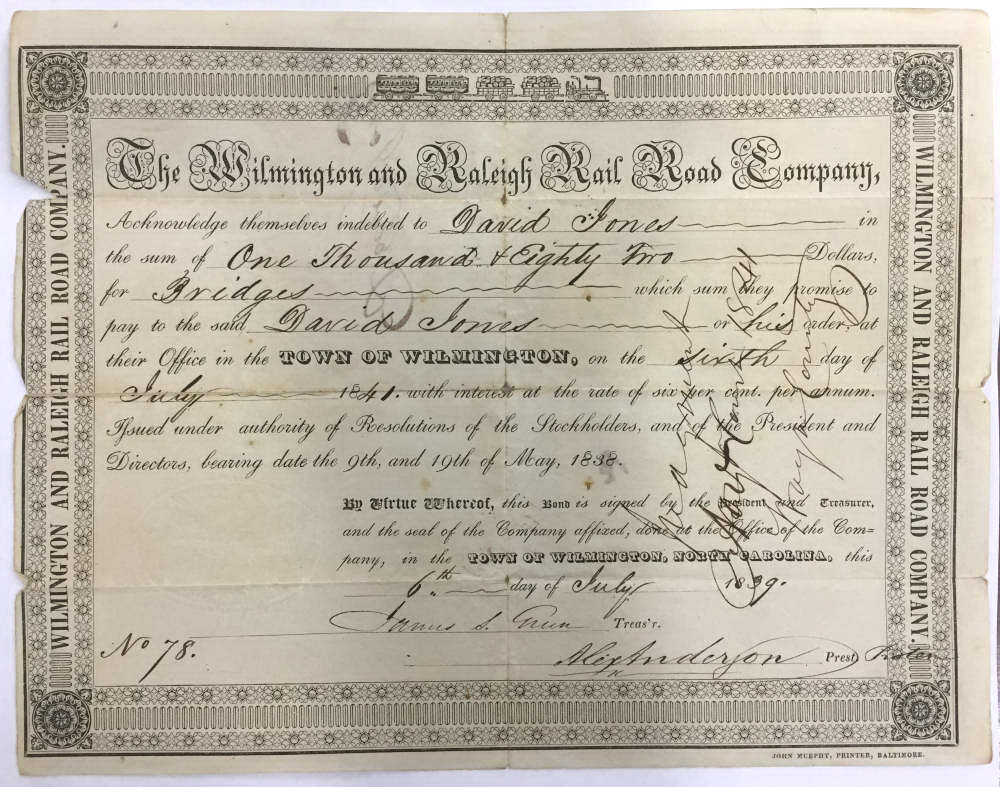 The Wilmington and Raleigh Rail Road Company,
Acknowledge themselves indebted to David Jones in
the sum of One Thousand & Eighty Two Dollars,
for Bridges which sum they promise to
pay to the said David Jones or his order, at
their Office in the TOWN OF WILMINGTON, on the sixth day of
July 1841. with interest at the rate of six per cent. per annum.
Issued under authority of Resolutions of the Stockholders, and of the President and
Directors, bearing date the 9th, and 19th of May, 1838.
By Virtue Whereof, this Bond is signed by the President and Treasurer,
and the seal of the Company affixed, done at the Office of the Com=
pany, in the TOWN OF WILMINGTON, NORTH CAROLINA, this
6th. day of July 1839.
James S. Green Treas'r.
No 78.
Alex Anderson Prest
WILMINGTON AND RALEIGH RAIL ROAD COMPANY.
WILMINGTON AND RALEIGH RAIL ROAD COMPANY.
1841
JOHN MURPHY, PRINTER, BALTIMORE.